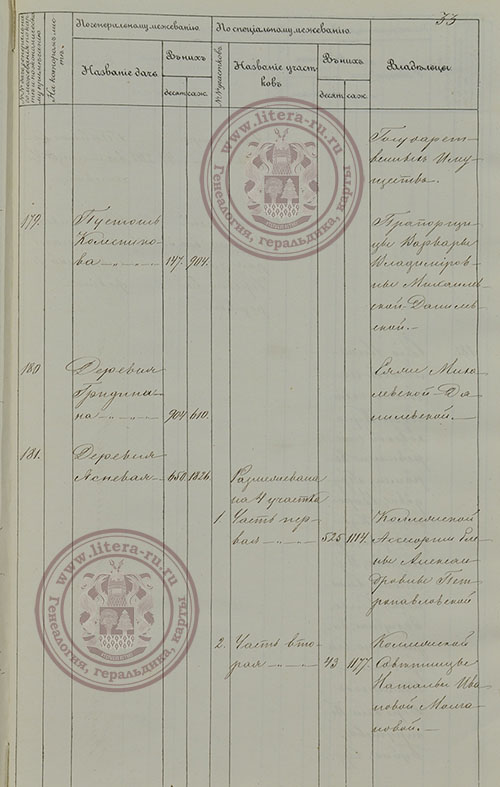 33
По генеральному межеванію. По спеціальному межеванію.
На которомъ листѣ.
Названіе дачъ
Въ нихъ
десят. саж.
№№ участковъ
Названіе участковъ
Въ нихъ
десят. саж.
Владѣльцы
Государст-
венныхъ Иму-
ществъ.
179. Пустошь
Колеснико-
ва 147. 904.
Прапорщи-
цы Варвары
Владиміров-
ны Михаилов-
ской Данилев-
ской.
180 Деревня
Гридини-
на 904. 610.
Ея же Миха-
левской-Да-
нилевской.
181. Деревня
Асневая 650. 1826.
Размежевана
на 4 участка
1. Часть пер-
вая 525 1114.
Коллежской
Ассесорши Еле-
ны Алексан-
дровны Пет-
ропавловской
2. Часть вто-
рая 43 1177.
Коллежской
Совѣтницы
Натальи Ива-
новой Молча-
новой.
www.litera-ru.ru
Генеалогия, геральдика, карты
www.litera-ru.ru
Генеалогия, геральдика, карты